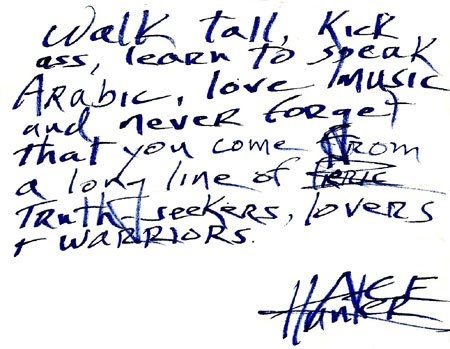 Walk tall, Kick
ass, learn to speak
Arabic, love Music
and never forget
that you come from
a long line of
Truth seekers, lovers
+ WARRIORS.
Hunter